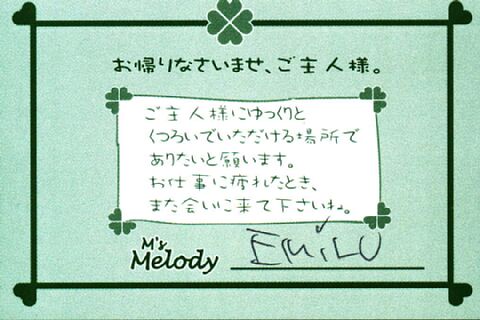 お帰りなさいませ、ご主人様。
ご主人様にゆっくりと
くつろいでいただける場所で
ありたいと願います。
お仕事に疲れたとき、
また会いに来て下さいね。
M's
Melody